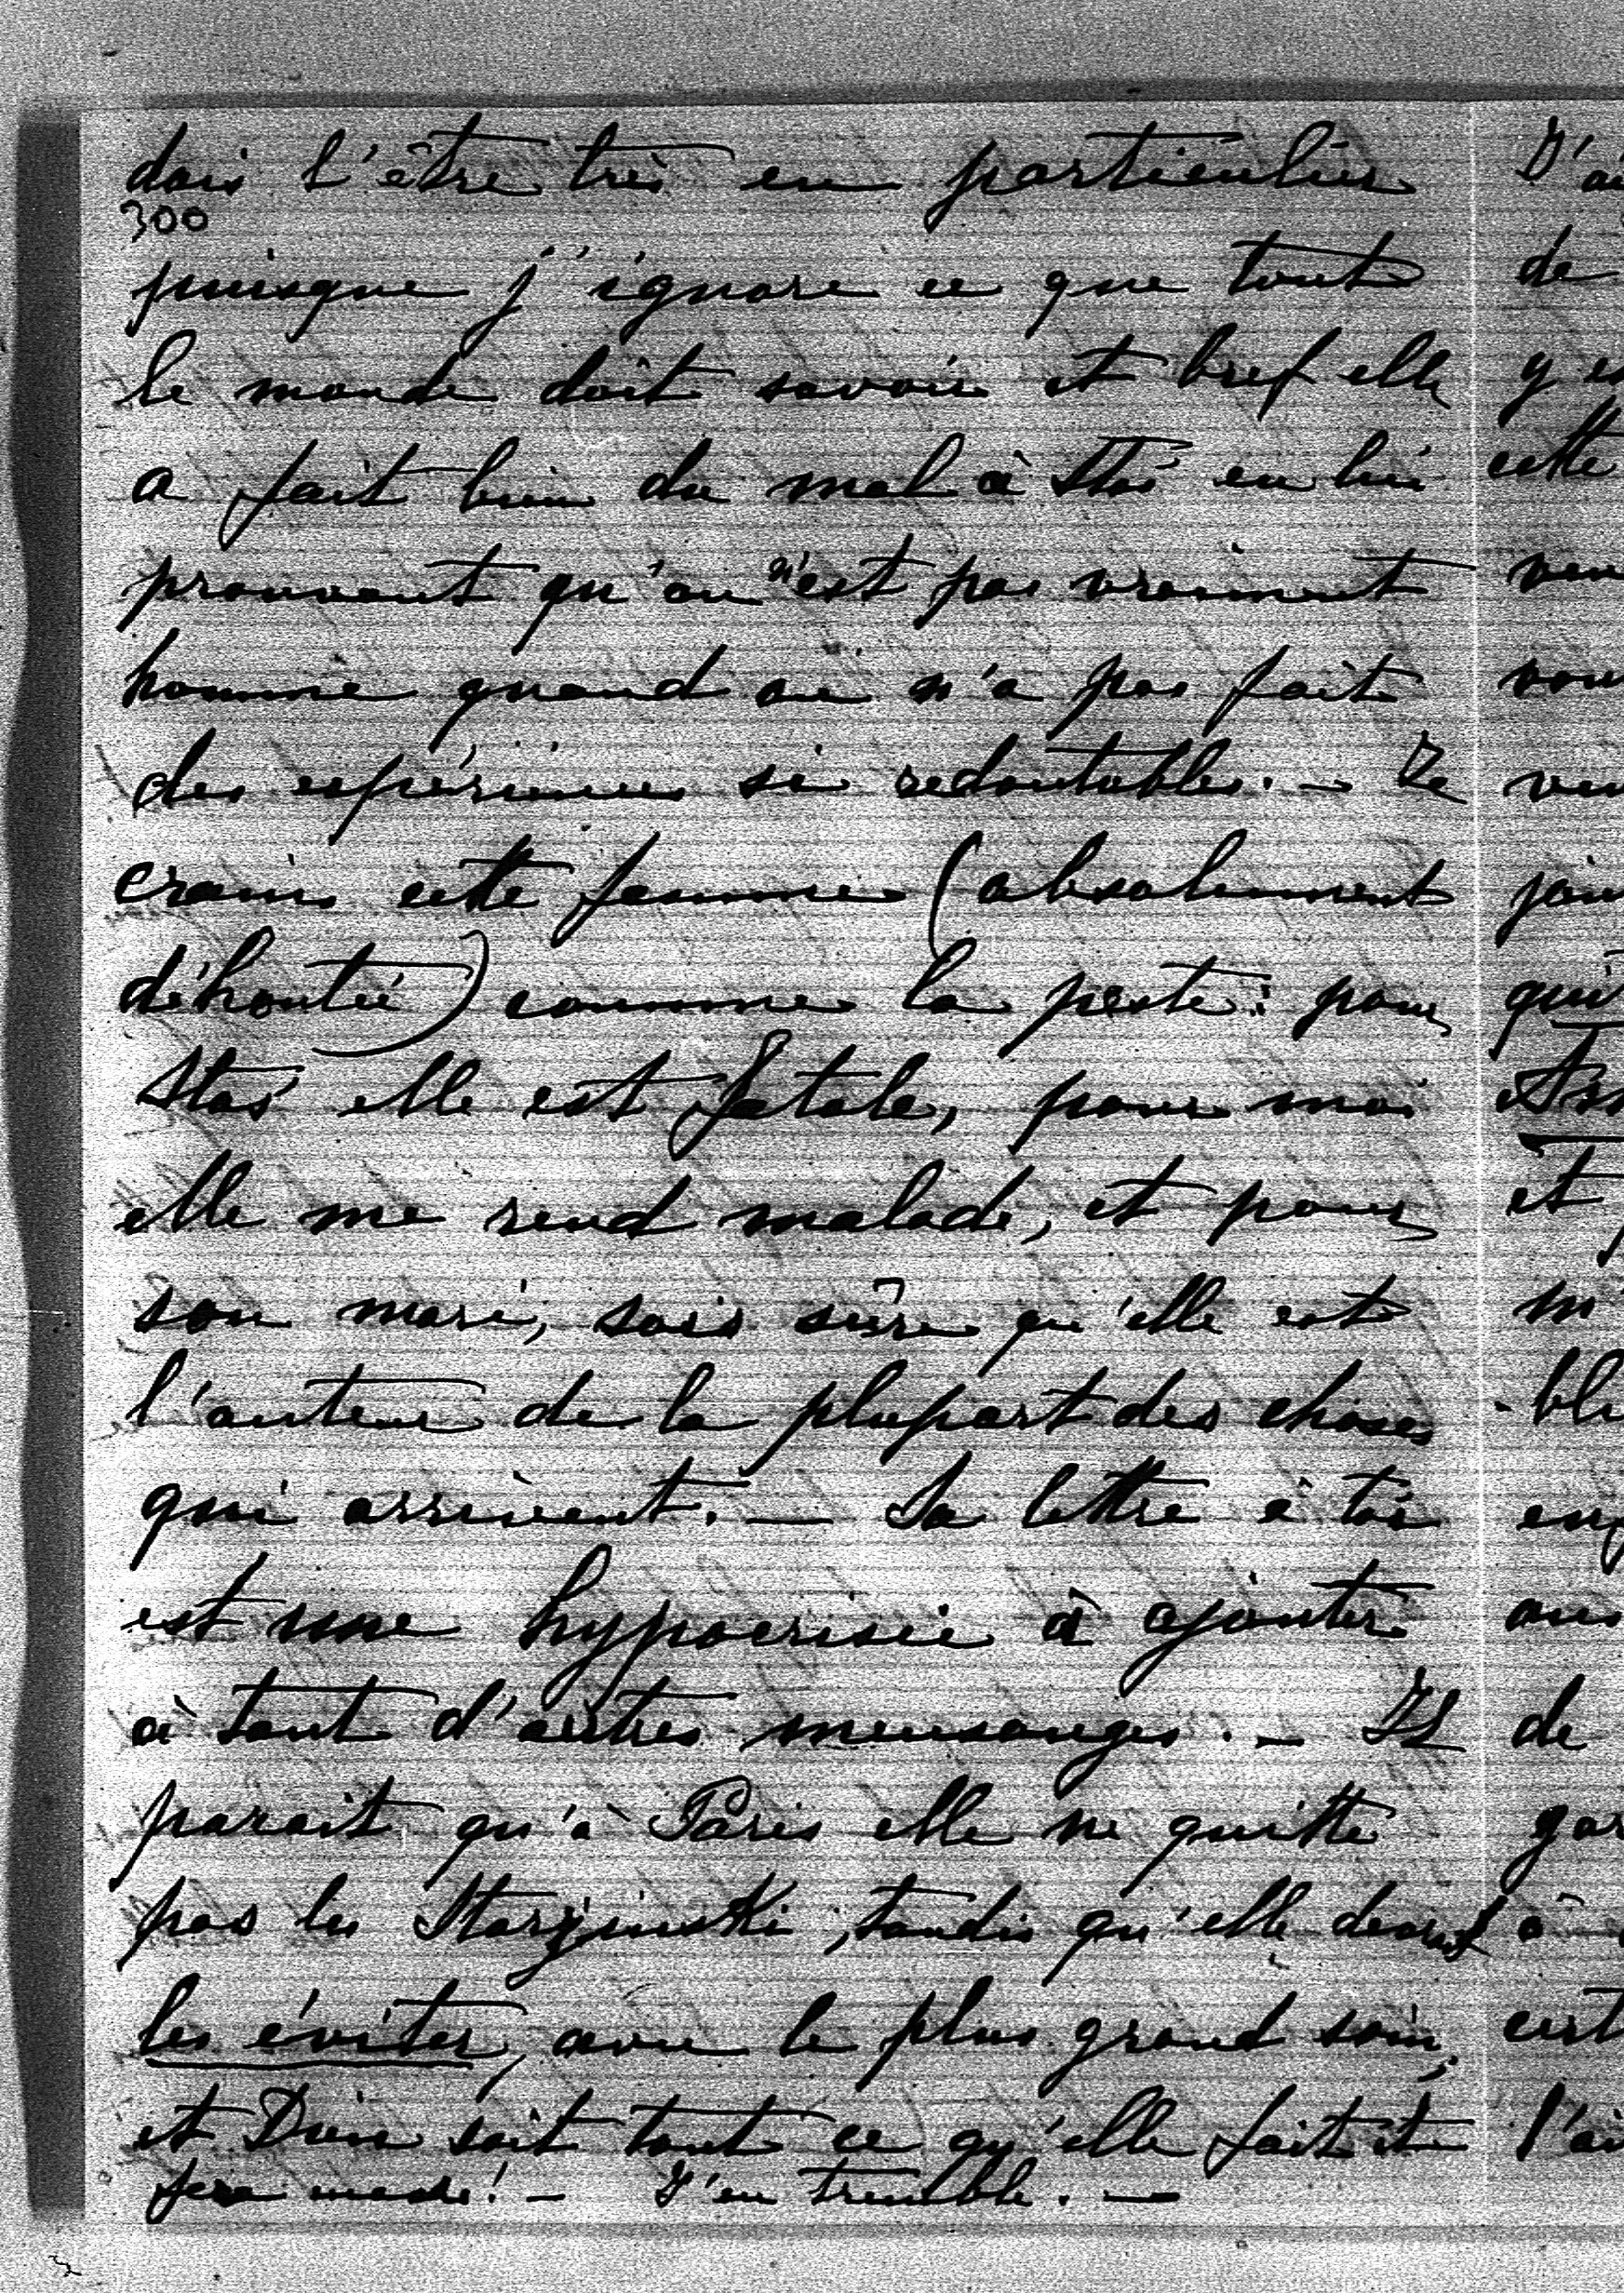 dois l'être très en particulier
300
puisque j'ignore ce que tout
le monde doit savoir et bref elle
a fait bien du mal à Stas en lui
prouvant qu'on n'est pas vraiment
homme quand on n'a pas fait
des expériences si redoutables. – Je
crains cette femme (absolument
déhontée) comme la peste: pour
Stas elle est fatale, pour moi
elle me rend malade, et pour
son mari, sois sûre qu'elle est
l'auteur de la plupart des choses
qui arrivent. – Sa lettre à toi
est une hypocrisie à ajouter
à tant d'autres mensonges. – Il
parait qu'à Paris elle ne quitte
pas les Starzynski, tandis qu'elle devrait
les éviter, avec le plus grand soin,
et Dieu sait tout ce qu'elle fait et
fera encore! – J'en tremble. –
J'ai
de
y
cette
et
m
de
à